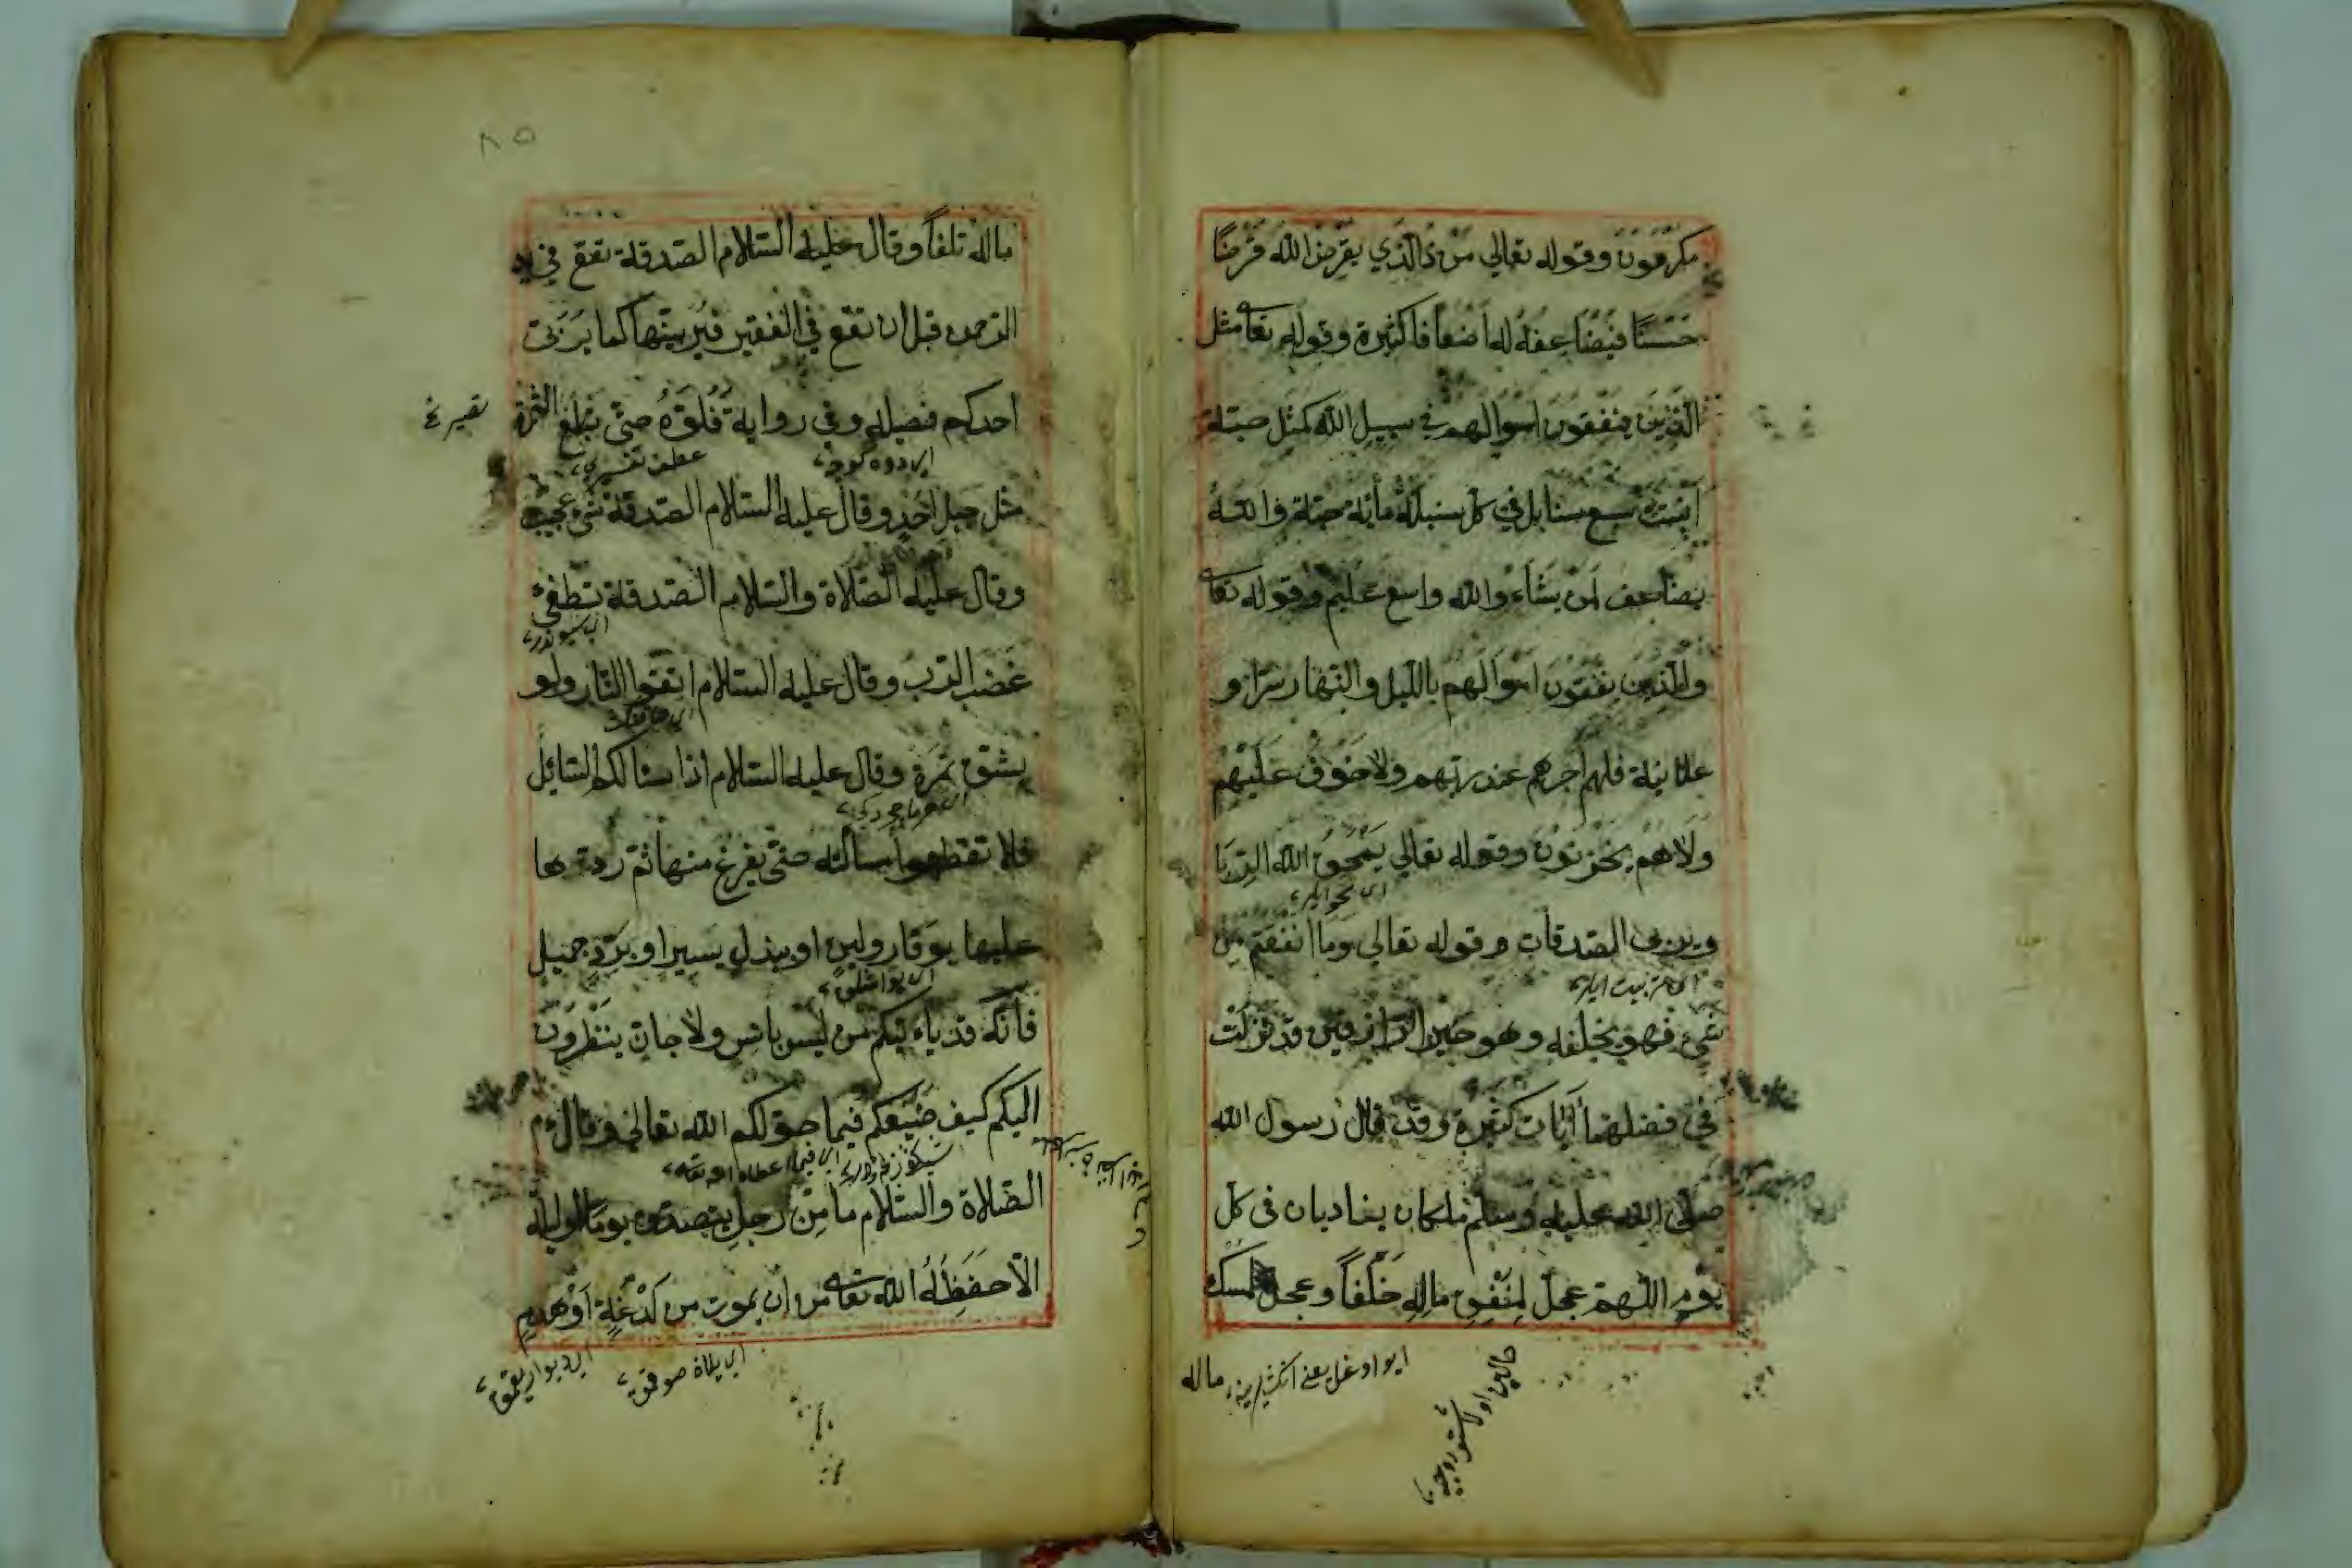 مكرمون وقوله تعالي من ذالذي يقرض الله قرضًا
حسنًا فيضاعفه له اضعافا كثيرة وقوله تعا مثل
الذين ينفقون اموالهم في سبيل الله كمثل حبة
انبتت سبع سنابل في كل سنبلة مأية حبة والله
يضاعف لمن يشاء والله واسع عليم وقوله تعا
والذين ينفقون اموالهم بالليل والنهار سرّا و
علانية فلهم اجرهم عند ربهم ولا خوف عليهم
ولا هم يحزنون وقوله تعالي يمحق الله الربا
اي محو ايلر
ويربي الصدقات وقوله تعالي وما انفقتم من
اي تربيت ايلر
شيء فهو يخلفه وهو خير الرازقين قد نزلت
في فضلها آيات كثيرة وقد قال رسول الله
صلى الله عليه وسلم ملكان يناديان في كل
يوم اللهم عجل لمنفق ماله خلفاً وعجل لممسك
ماله
٨٥
ماله تلفاً وقال عليه السلام الصدقة تقع في يد
الرحمن قبل ان تقع في الفقير فيربيتها كما يربى
احدكم فصيله وفي رواية فلوّه حتى تبلغ الثمرة
عطف تفسيري
مثل جبل احد وقال عليه السلام الصدقة شيء عجيب
وقال عليه الصلاة والسلام الصدقة تطفئ
غضب الرب وقال عليه السلام اتقوا النار ولو
بشق تمرة وقال عليه السلام اذا سئالكم السائل
فلا تقطعوا مسألته حتى يفرغ منها ثم ردة ها
عليها بوقار ولين او ببذل يسير او بردٍ جميل
فانه قد ياء تيكم من ليس بانس ولا جان ينظرون
اليكم كيف ضيعكم فيما خولكم الله تعالي وقال ءم
اي فيما اعطاه
الصلاة والسلام ما من رجل يتصدق يوما او ليلة
الا حفظه الله تعا من ان يموت من لدغة او هدم